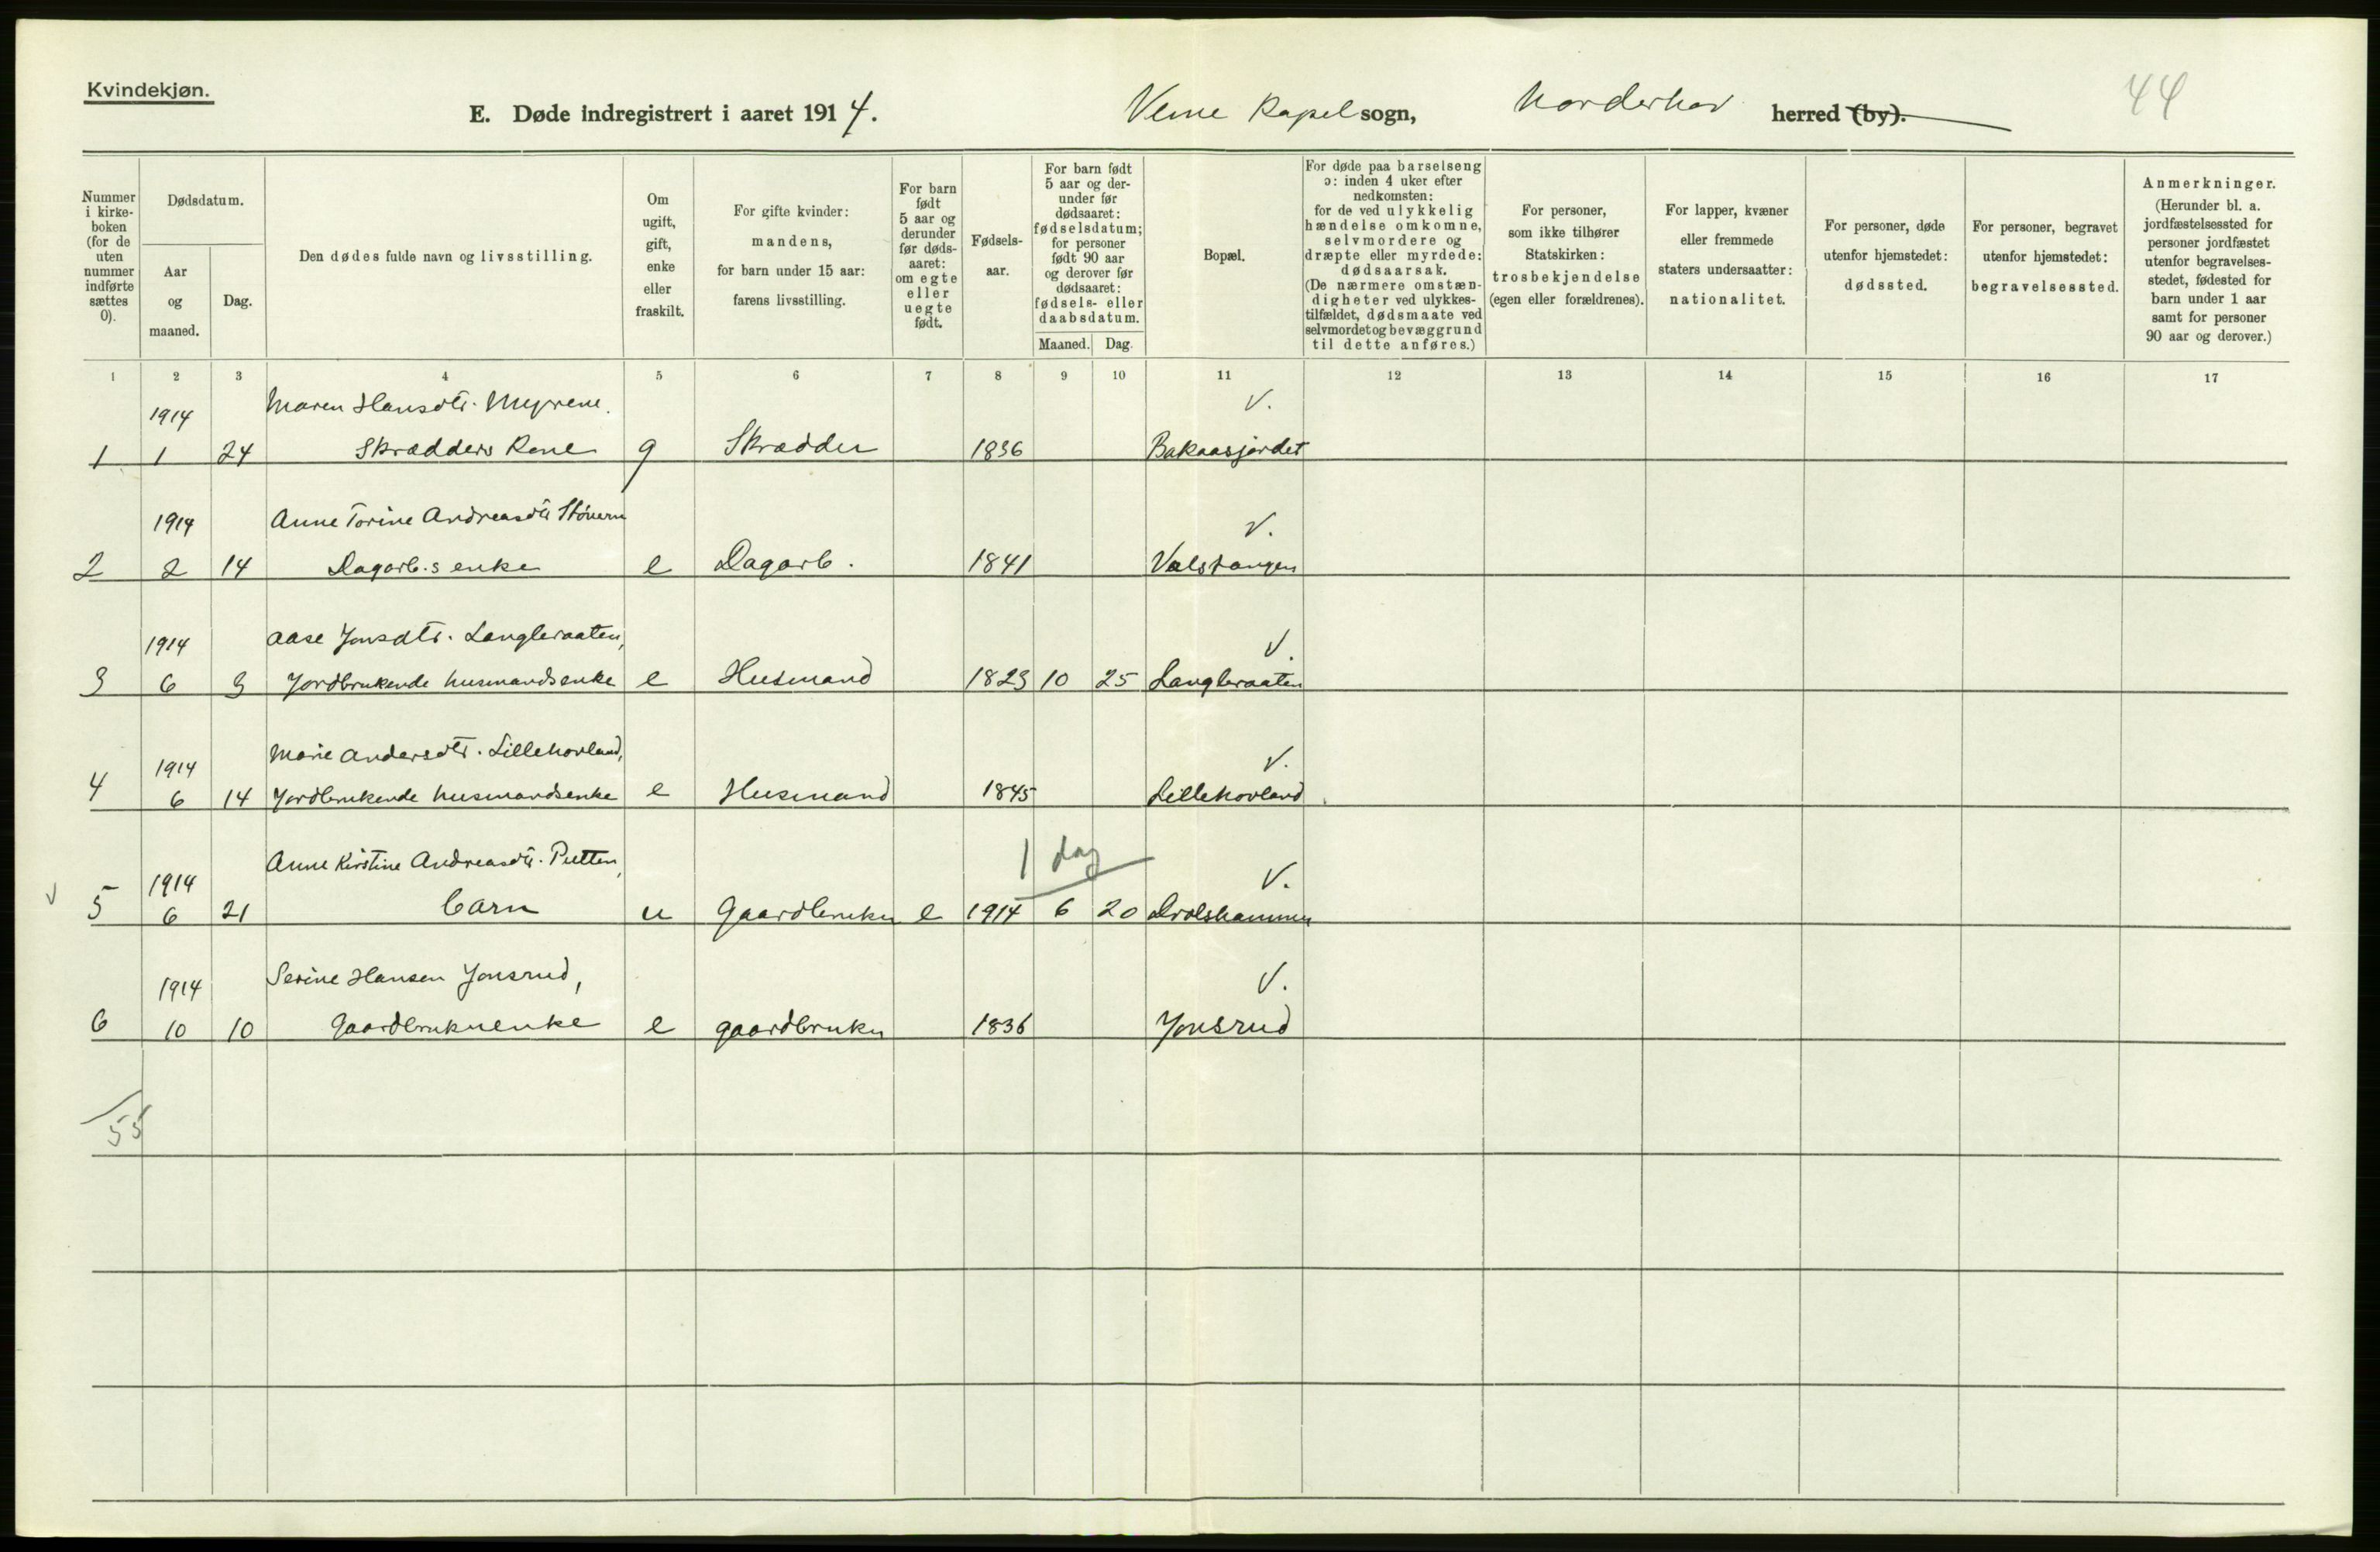 Kvindekjøn.
E. Døde indregistrert i aaret 1914. Veme Kapel sogn, Norderhov herred (by).
44
Nummer i kirke-boken (for de uten nummer indførte sættes 0).
Dødsdatum.
Aar og maaned.
Dag.
Den dødes fulde navn og livsstilling.
Om ugift, gift, enke eller fraskilt.
For gifte kvinder: mandens, for barn under 15 aar: farens livsstilling.
For barn født 5 aar og derunder før døds-aaret: om egte eller uegte født.
Fødsels-aar.
For barn født 5 aar og der-under før dødsaaret: fødselsdatum; for personer født 90 aar og derover før dødsaaret: fødsels- eller daabsdatum.
Maaned. Dag.
Bopæl.
For døde paa barselseng ɔ: inden 4 uker efter nedkomsten: for de ved ulykkelig hændelse omkomne, selvmordere og dræpte eller myrdede: dødsaarsak. (De nærmere omstæn-digheter ved ulykkes-tilfældet, dødsmaate ved selvmordet og bevæggrund til dette anføres.)
For personer, som ikke tilhører Statskirken: trosbekjendelse (egen eller forældrenes).
For lapper, kvæner eller fremmede staters undersaatter: nationalitet.
For personer, døde utenfor hjemstedet: dødssted.
For personer, begravet utenfor hjemstedet: begravelsessted.
Anmerkninger. (Herunder bl. a. jordfæstelsessted for personer jordfæstet utenfor begravelses-stedet, fødested for barn under 1 aar samt for personer 90 aar og derover.)
1 2 3 4 5 6 7 8 9 10 11 12 13 14 15 16 17
1914 Maren Hansdtr. Myrene. V.
1 1 24 Skrædders Kone g Skrædder 1836 Bakaasjordet
1914 Anne Torine Andreasdtr V.
2 2 14 Dagarb.s enke e Dagarb. 1841 Valstangen
1914 Aase Jonsdtr. Langleraaten, V.
3 6 3 Jordbrukende husmandsenke e Husmand 1823 10 25 Langleraaten
1914 Marie Andersdtr. Lillehovland, V.
4 6 14 Jordbrukende husmandsenke e Husmand 1845 Lillehovland
1914 Anne Kirstine Andreasdtr. Putten, 1 dag V.
V 5 6 21 barn u Gaardbruker e 1914 6 20 Drolshammer
1914 Serine Hansen Jonsrud, V.
6 10 10 Gaardbrukerenke e gaardbruker 1836 Jonsrud
55